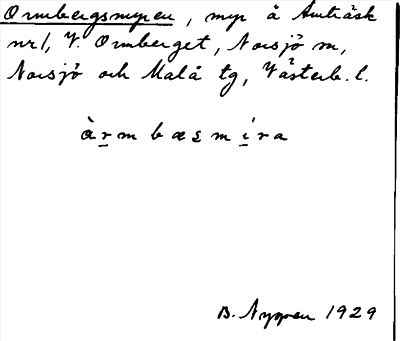 Ormbergsmyren, myr å Amträsk
nr 1, V. Ormberget, Norsjö sn,
Norsjö och Malå tg, Västerb. l.
àrmbæsmíra
B. Nygren 1929